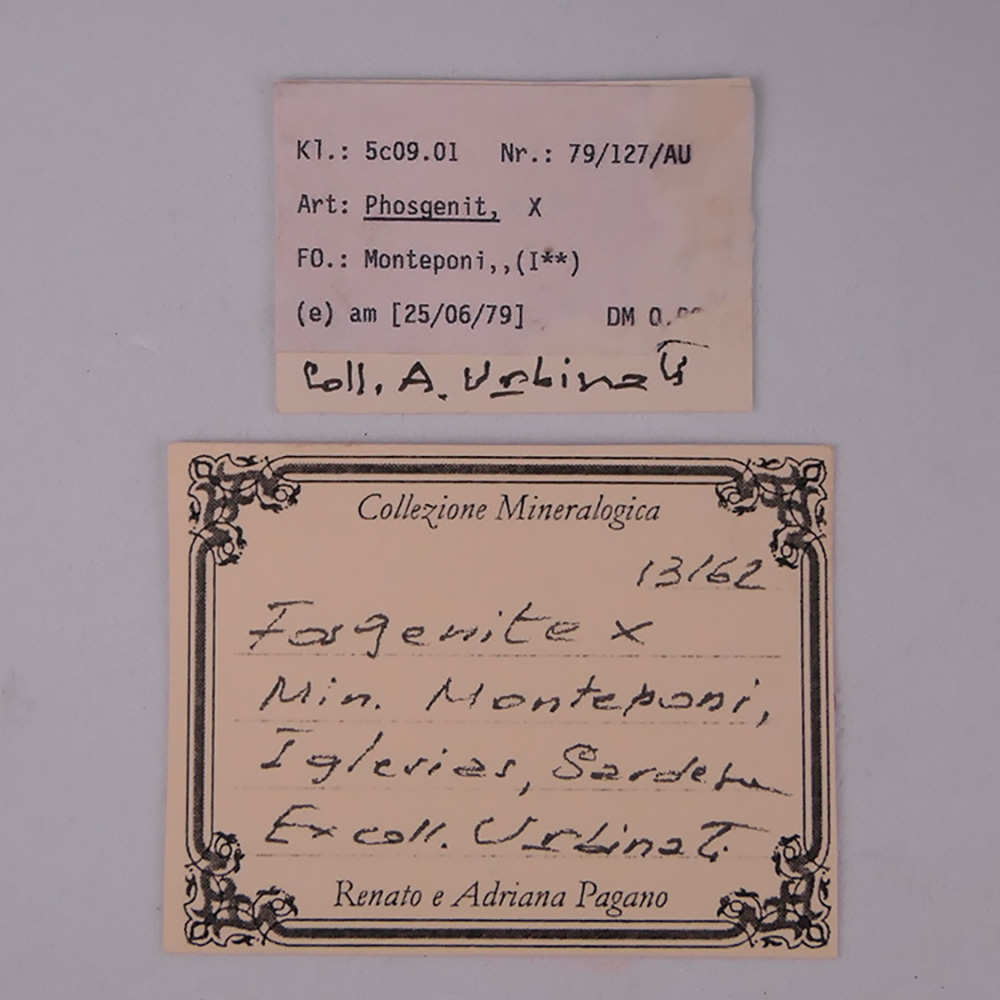 Kl.: 5c09.01 Nr.: 79/127/AU
Art: Phosgenit, X
FO.: Monteponi,,(I**)
(e) am [25/06/79] DM 0.00
Coll. A. Urbinati
Collezione Mineralogica
13162
Fosgenite x
Min. Monteponi,
Iglesias,
Ex coll. Urbinati
Renato e Adriana Pagano